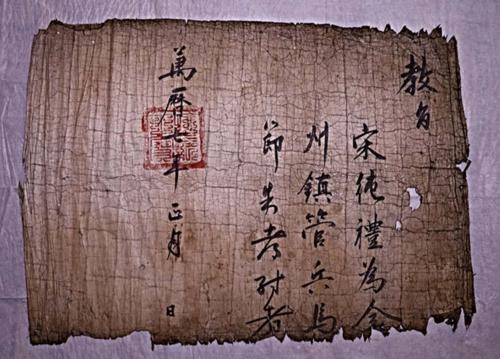 教旨
宋純禮為全
州鎮管兵馬
節失考者
萬暦七年正月 日